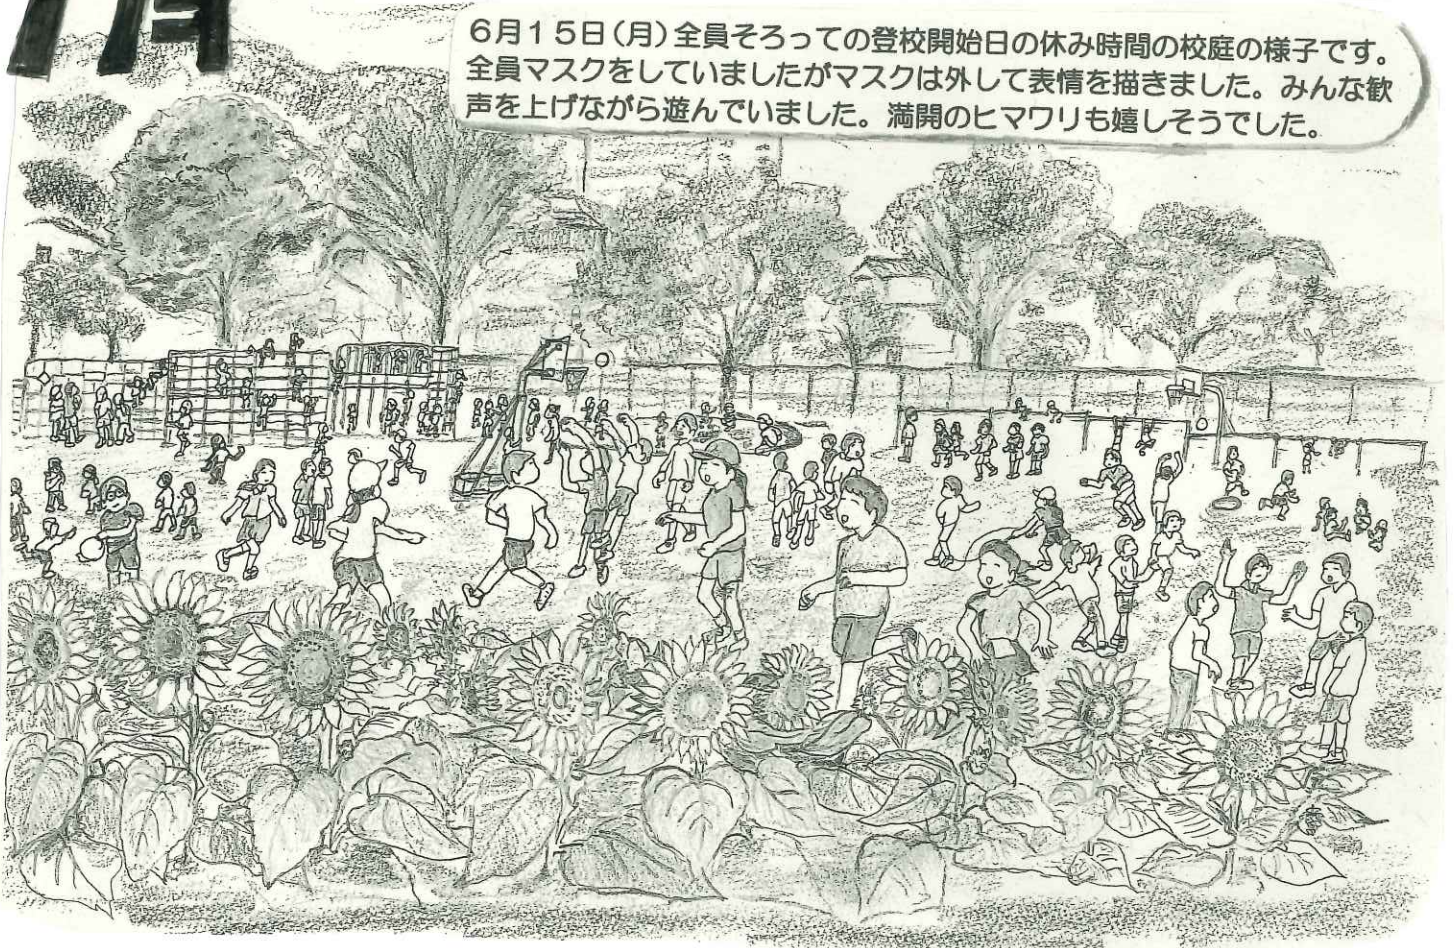 月
６月１５日（月）全員そろっての登校開始日の休み時間の校庭の様子です。
全員マスクをしていましたがマスクは外して表情を描きました。みんな歓
声を上げながら遊んでいました。満開のヒマワリも嬉しそうでした。